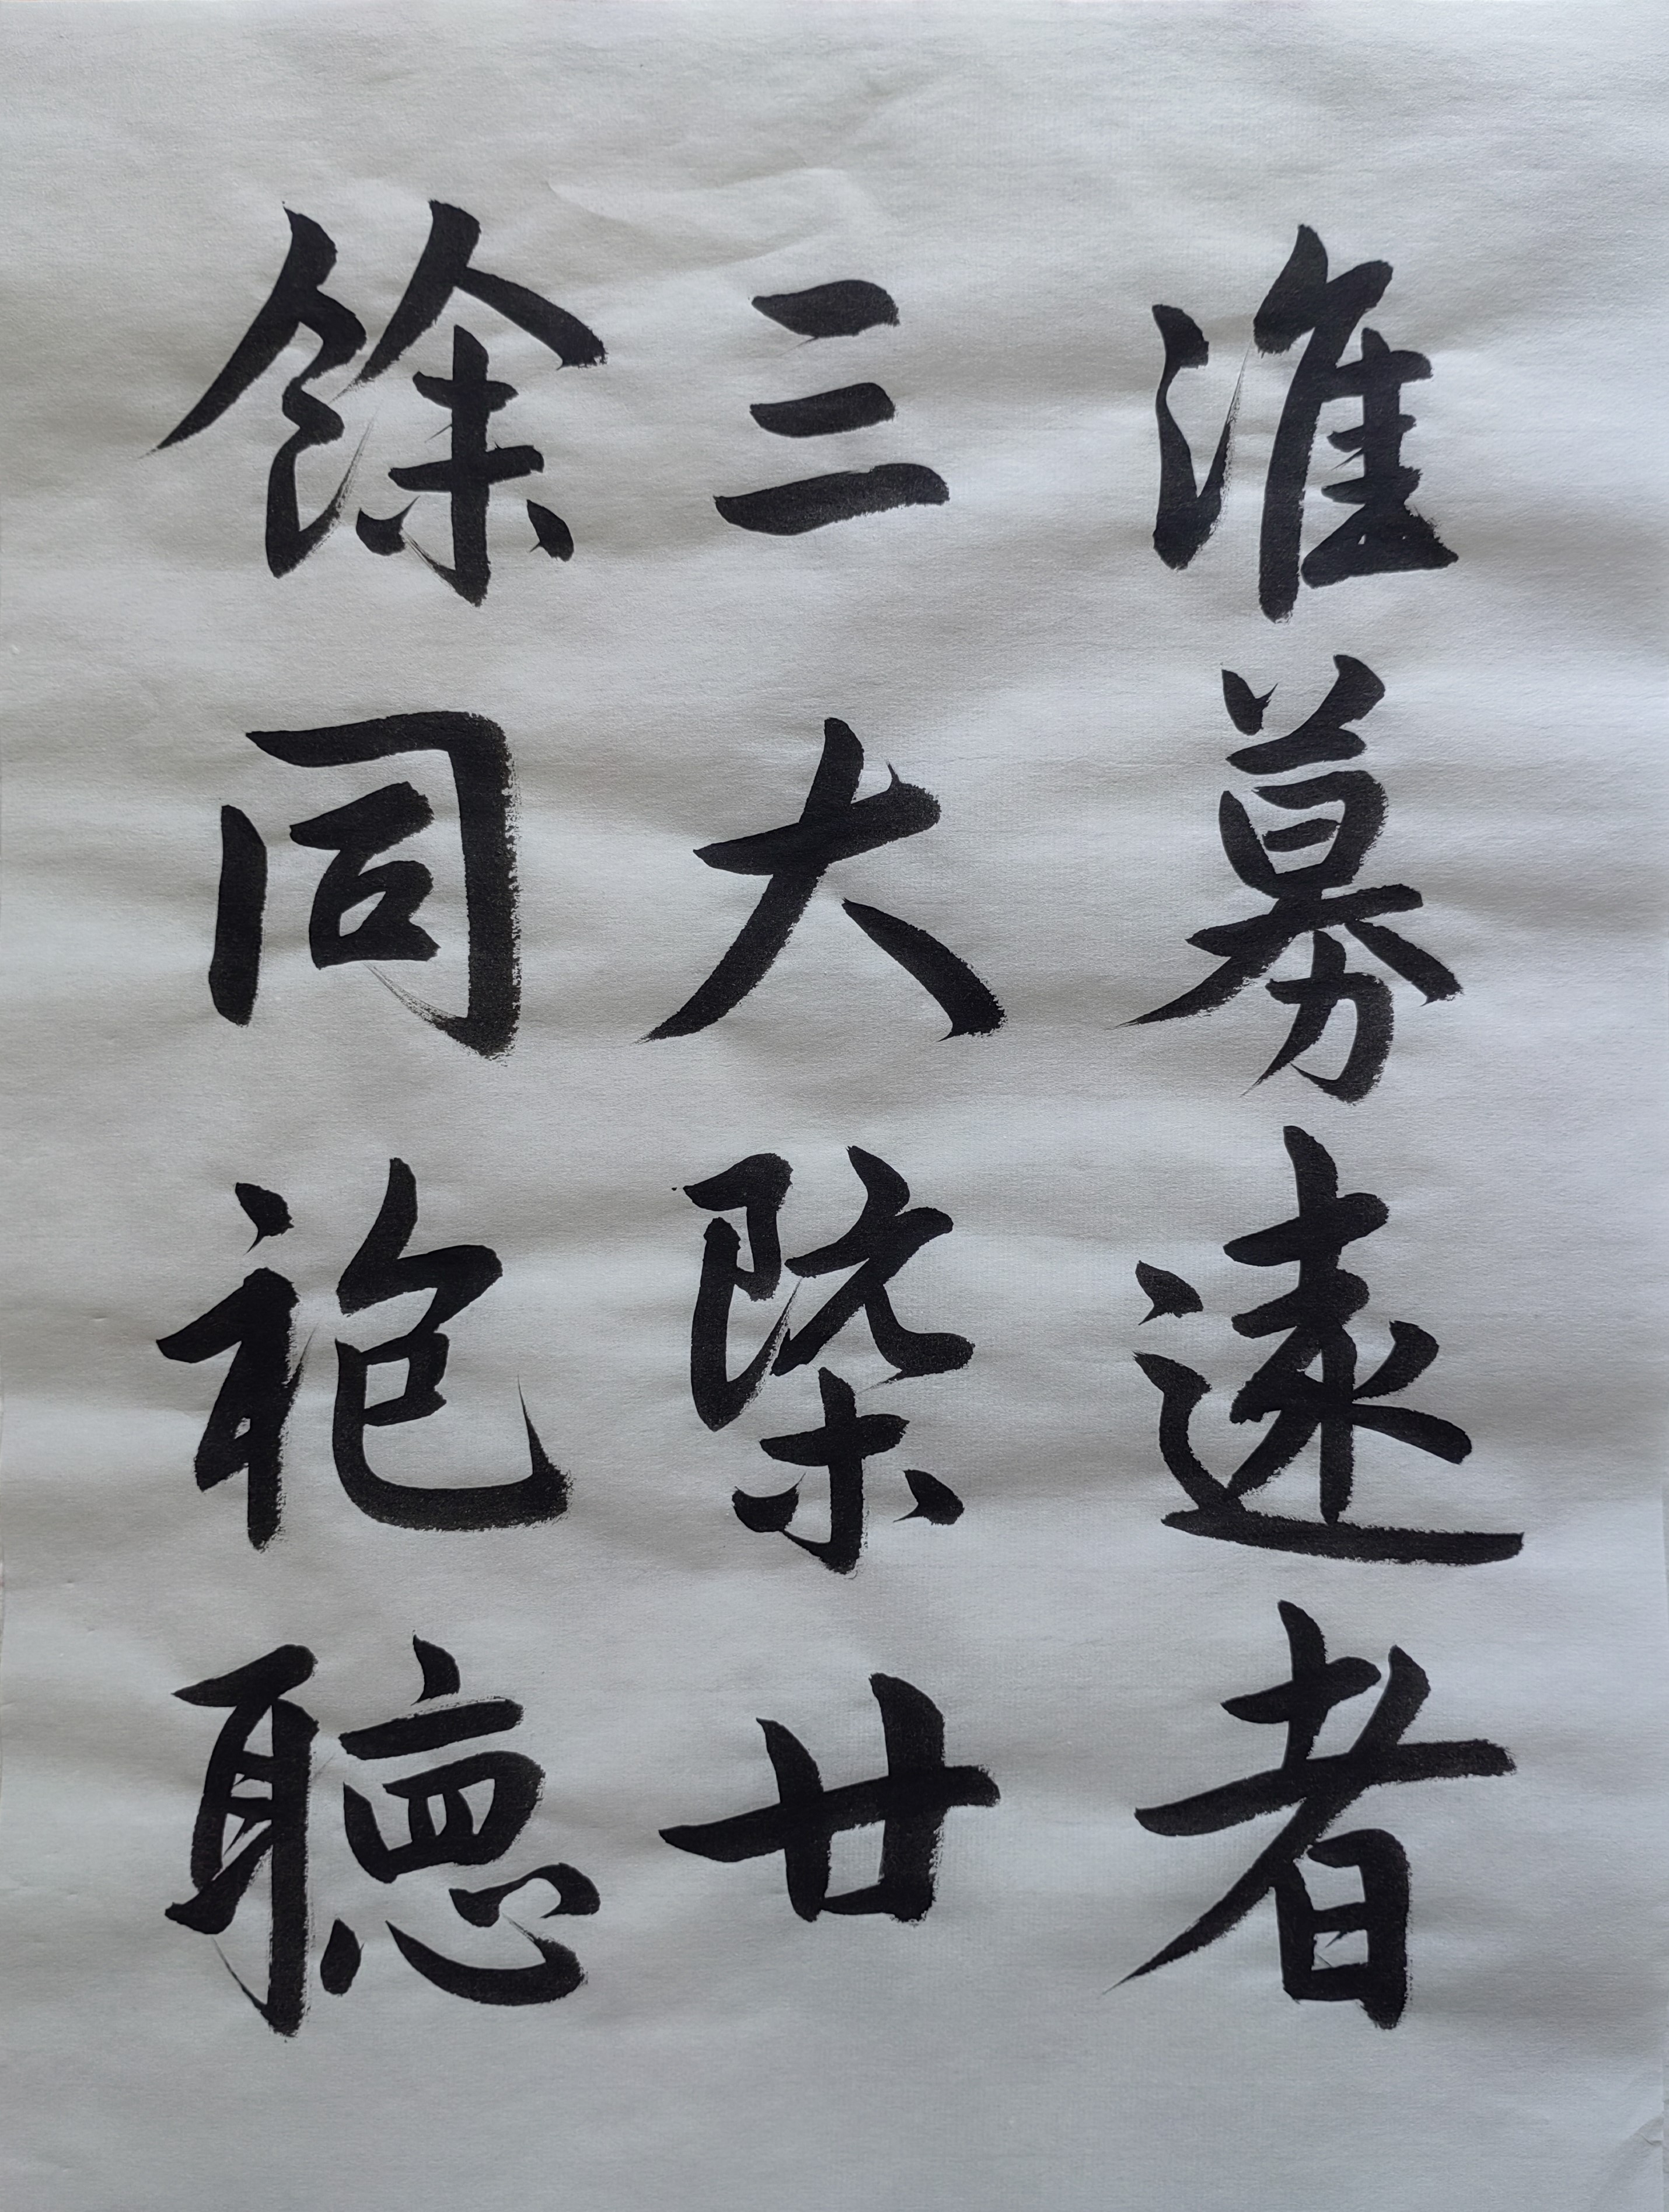 淮募遠者
三大槩廿
餘同袍聽